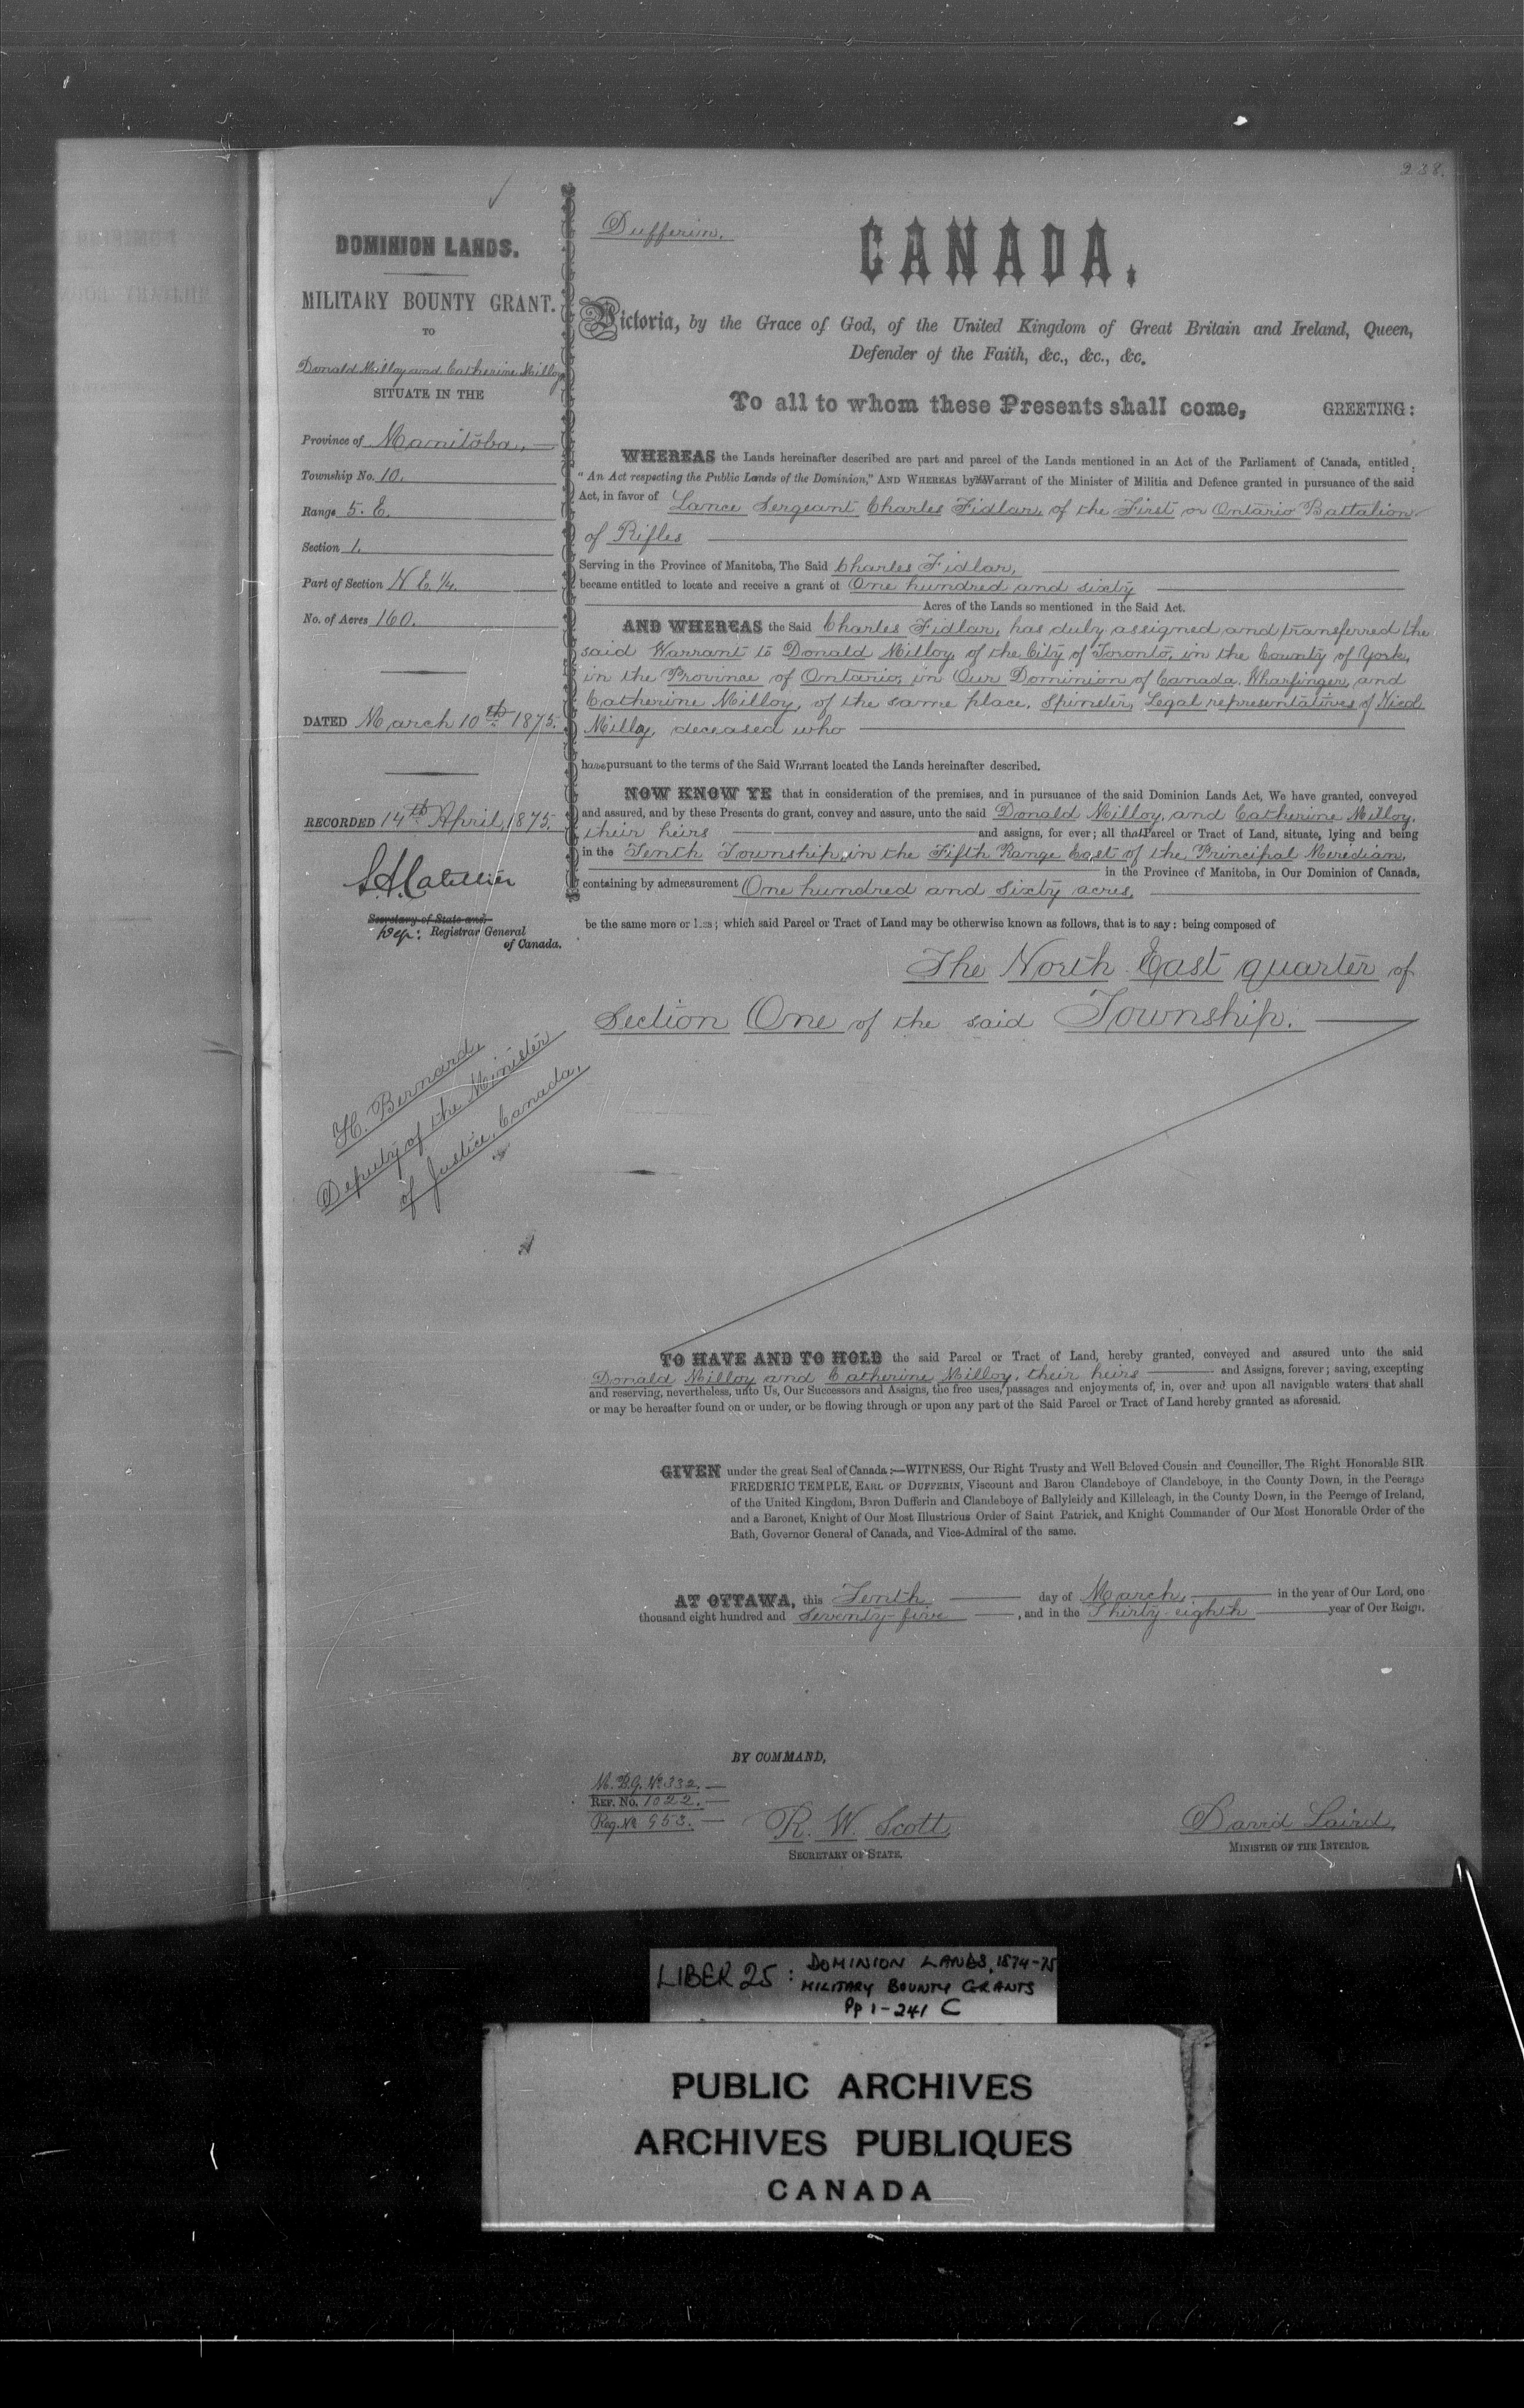 238.
DOMINION LANDS.
MILITARY BOUNTY GRANT.
TO
Donald Milloy and Catherine Milloy
SITUATE IN THE
Province of Manitoba.
Township No. 10.
Range 5. E.
Section 1.
Part of Section N E ¼.
No. of Acres 160.
DATED March 10th 1875.
RECORDED 14th April, 1875.
Secretary of State and
Dep: Registrar General
of Canada.
H. Bernard,
Deputy of the Minister
of Justice, Canada.
Dufferin.
CANADA.
Victoria, by the Grace of God, of the United Kingdom of Great Britain and Ireland, Queen,
Defender of the Faith, &c., &c., &c.
To all to whom these Presents shall come, GREETING:
WHEREAS the Lands hereinafter described are part and parcel of the Lands mentioned in an Act of the Parliament of Canada, entitled
"An Act respecting the Public Lands of the Dominion," AND WHEREAS by Warrant of the Minister of Militia and Defence granted in pursuance of the said
Act, in favor of Lance Sergeant Charles Fidlar, of the First or Ontario Battalion
of Rifles
Serving in the Province of Manitoba, The Said Charles Fidlar,
became entitled to locate and receive a grant of One hundred and sixty
Acres of the Lands so mentioned in the Said Act.
AND WHEREAS the Said Charles Fidlar, has duly assigned and transferred the
said Warrant to Donald Milloy, of the City of Toronto, in the County of York,
in the Province of Ontario, in Our Dominion of Canada, Wharfinger, and
Catherine Milloy, of the same place, Spinster, Legal representatives of Nicol
Milloy, deceased who
have pursuant to the terms of the Said Warrant located the Lands hereinafter described.
NOW KNOW YE that in consideration of the premises, and in pursuance of the said Dominion Lands Act, We have granted, conveyed
and assured, and by these Presents do grant, convey and assure, unto the said Donald Milloy, and Catherine Milloy,
their heirs and assigns, for ever; all that Parcel or Tract of Land, situate, lying and being
in the Tenth Township, in the Fifth Range East of the Principal Meridian,
in the Province of Manitoba, in Our Dominion of Canada,
containing by admeasurement One hundred and sixty acres,
be the same more or less; which said Parcel or Tract of Land may be otherwise known as follows, that is to say: being composed of
The North East quarter of
Section One of the said Township.
TO HAVE AND TO HOLD the said Parcel or Tract of Land, hereby granted, conveyed and assured unto the said
Donald Milloy and Catherine Milloy, their heirs and Assigns, forever; saving, excepting
and reserving, nevertheless, unto Us, Our Successors and Assigns, the free uses, passages and enjoyments of, in, over and upon all navigable waters that shall
or may be hereafter found on or under, or be flowing through or upon any part of the Said Parcel or Tract of Land hereby granted as aforesaid.
GIVEN under the great Seal of Canada:—WITNESS, Our Right Trusty and Well Beloved Cousin and Councillor, The Right Honorable SIR
FREDERIC TEMPLE, EARL OF DUFFERIN, Viscount and Baron Clandeboye of Clandeboye, in the County Down, in the Peerage
of the United Kingdom, Baron Dufferin and Clandeboye of Ballyleidy and Killeleagh, in the County Down, in the Peerage of Ireland,
and a Baronet, Knight of Our Most Illustrious Order of Saint Patrick, and Knight Commander of Our Most Honorable Order of the
Bath, Governor General of Canada, and Vice-Admiral of the same.
AT OTTAWA, this Tenth day of March, in the year of Our Lord, one
thousand eight hundred and Seventy-five, and in the Thirty-eighth year of Our Reign.
BY COMMAND,
M.B.G. No 332.
REF. No. 1022.
Reg. No 953.
R. W. Scott
SECRETARY OF STATE.
David Laird,
MINISTER OF THE INTERIOR.
LIBER 25: DOMINION LANDS, 1874-75
MILITARY BOUNTY GRANTS
Pp 1-241 C
PUBLIC ARCHIVES
ARCHIVES PUBLIQUES
CANADA